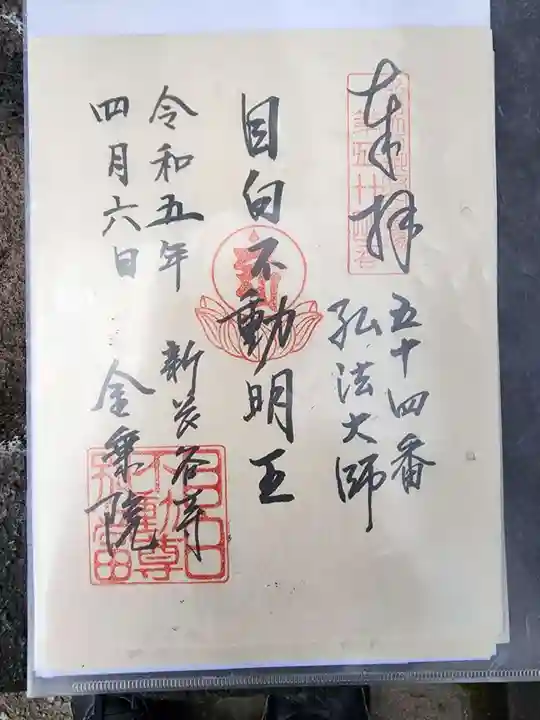 奉拝
五十四番
弘法大師
目白不動明王
新長谷寺
令和五年
四月六日
金乗院